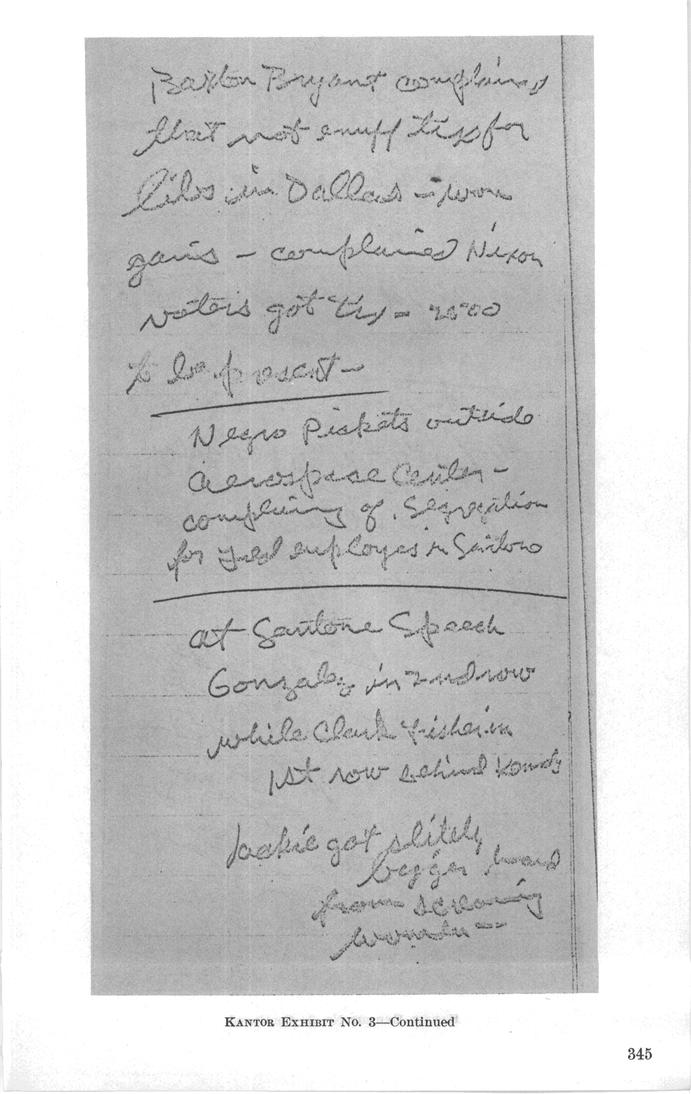 Baxton Bryant complains
that not enuff tix for
libs in Dallas –
gains – complained Nixon
voters got tix – 2500
to be present –
Negro Pickets outside
Aerospace Center –
complaining of Segregation
for Fed employes in Santone
at Santone Speech
Gonzalez in 2nd row
while Clark Fisher in
1st row behind Kennedy
Jackie got slitely
bigger hand
from screaming
women --
KANTOR EXHIBIT No. 3—Continued
345